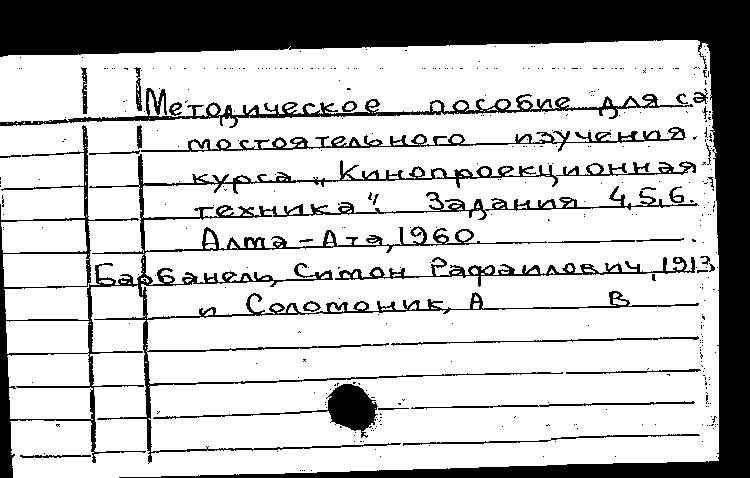 Методическое пособие для са
мостоятельного изучения.
курса „Кинопроекционная
техника". Задания 4,5,6.
Алма-Ата, 1960.
Барбанель, Симон Рафаилович, 1913
и Соломоник, А В